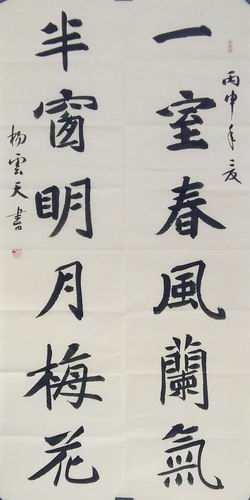 丙申年夏
一室春風蘭氣
半窗明月梅花
杨雲天書